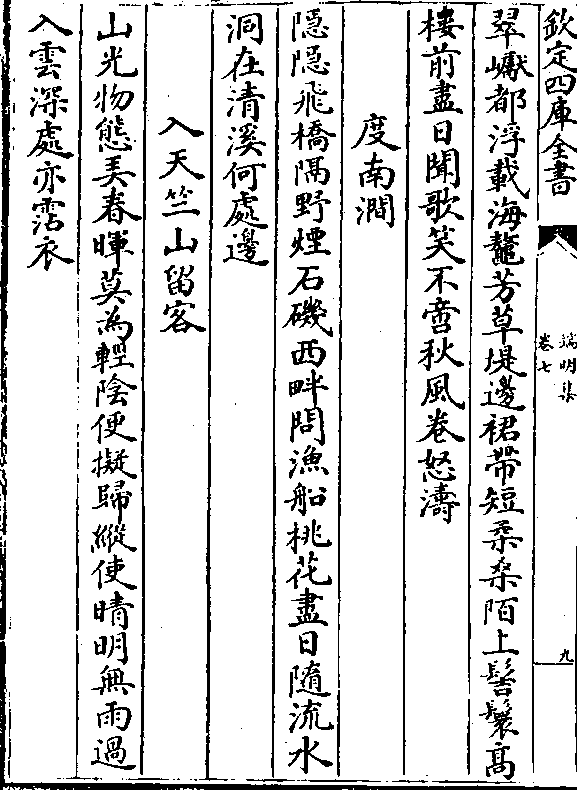 欽定四庫全書
端明集
卷七
九
翠巘都浮載海鼇芳草堤邊裙帶短柔桑陌上髻鬟髙
樓前盡日聞歌笑不啻秋風卷怒濤
度南澗
隠隠飛橋隔野煙石磯西畔問漁船桃花盡日隨流水
洞在清溪何處邊
入天竺山留客
山光物態美春暉莫為輕陰便擬歸縱使晴明無雨過
入雲深處亦霑衣